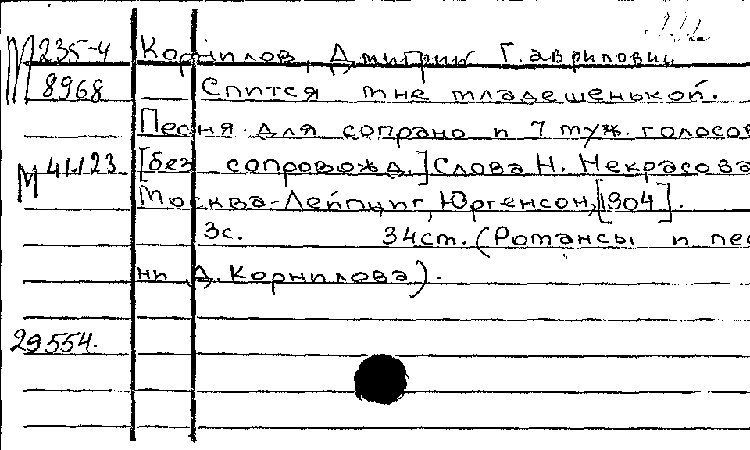 М 235-4 Корнилов, Дмитрий Гаврилович
8968 Спится мне младешенькой.
Песня для сопрано и 7 муж. голосов
М 41123 [без сопровожд.] Слова Н. Некрасова
Москва-Лейпциг, Юргенсон, [1904].
3с. 34см. (Романсы и пес
ни Д. Корнилова).
29554.